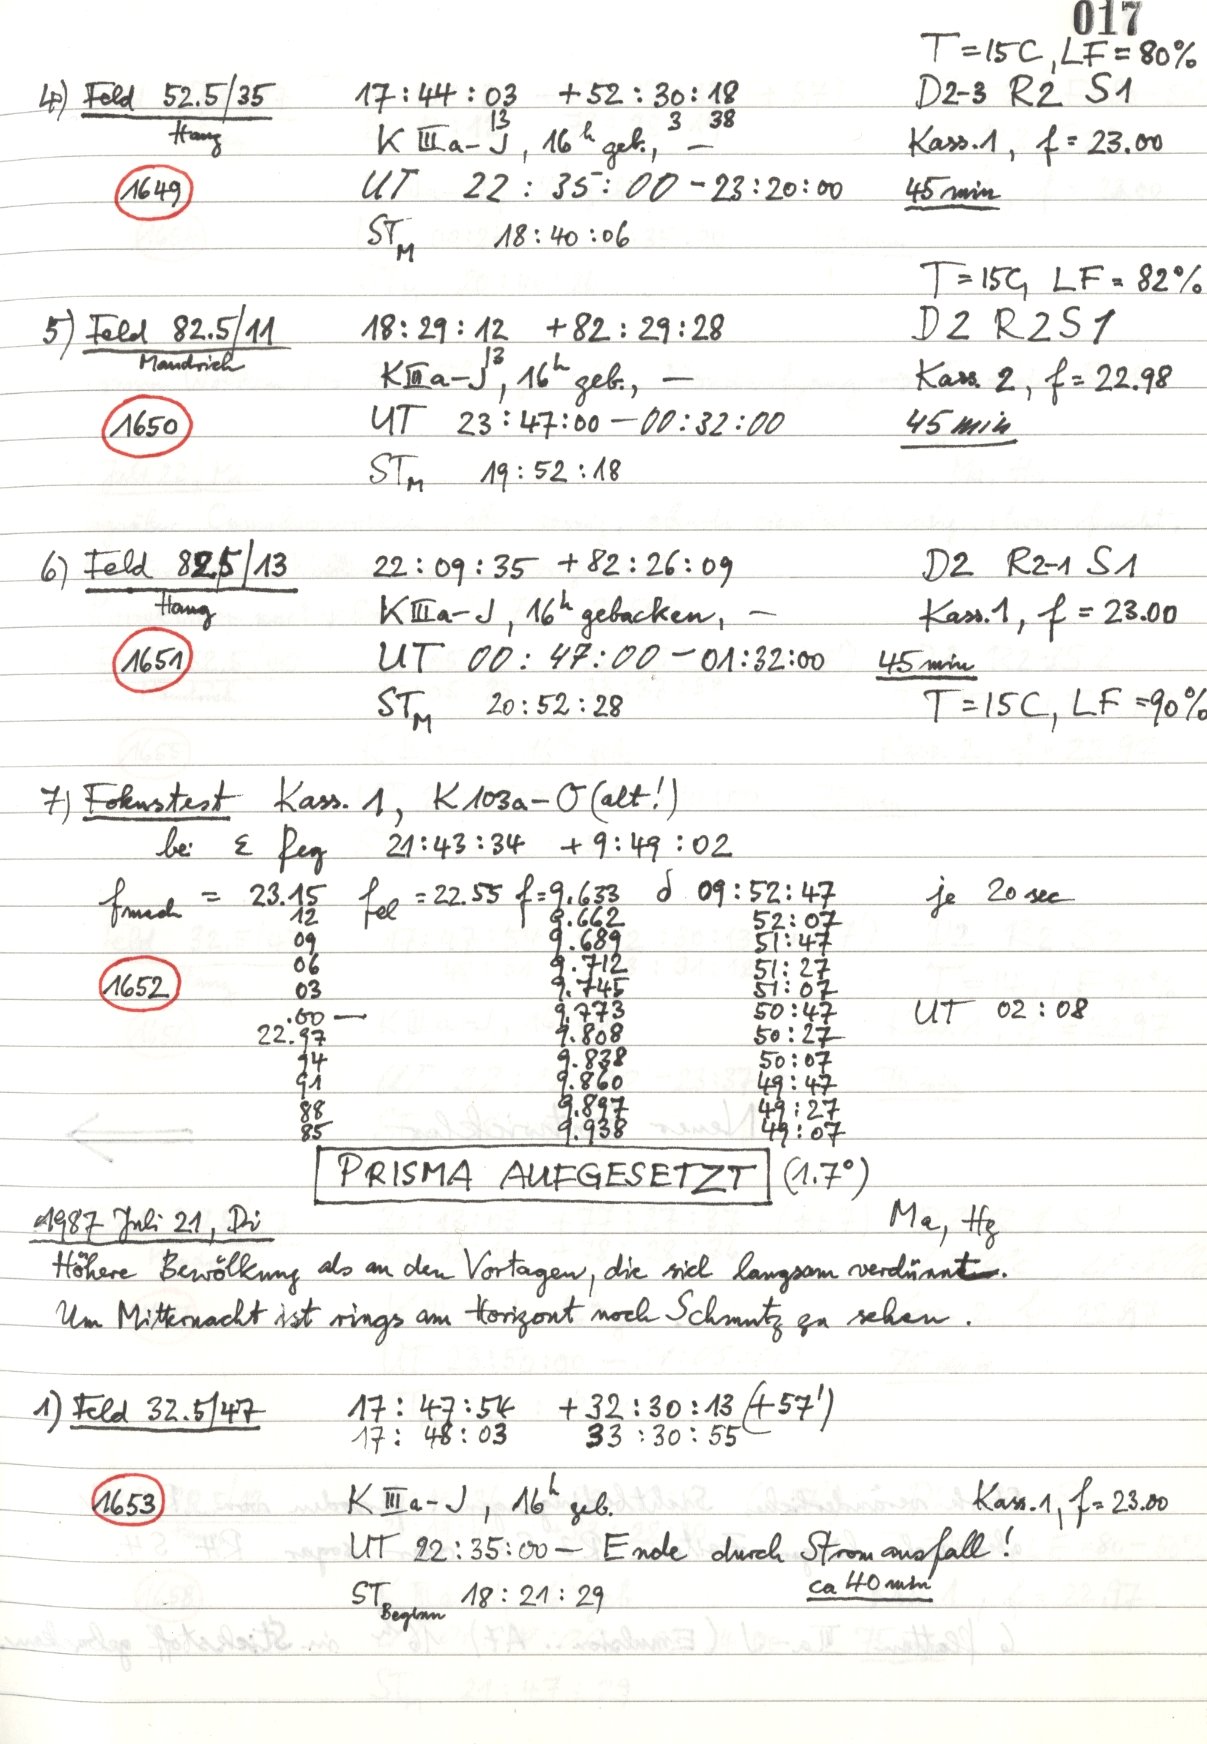 017
T=15C, LF=80%
4) Feld 52.5/35 17:44:03 +52:30:18 D2-3 R2 S1
13 3 38
Haug K IIIa-J, 16h geb., — Kass.1, f=23.00
1649 UT 22:35:00-23:20:00 45 min
STM 18:40:06
T=15C, LF=82%
5) Feld 82.5/11 18:29:12 +82:29:28 D2 R2 S1
13
Mandrich K IIIa-J, 16h geb., — Kass. 2, f=22.98
1650 UT 23:47:00-00:32:00 45 min
STM 19:52:18
6) Feld 82.5/13 22:09:35 +82:26:09 D2 R2-1 S1
Haug K IIIa-J, 16h gebacken, — Kass.1, f=23.00
1651 UT 00:47:00-01:32:00 45 min
STM 20:52:28 T=15C, LF=90%
7) Fokustest Kass. 1, K103a-O (alt!)
bei ε Peg 21:43:34 +9:49:02
fmech = 23.15 fel = 22.55 f=9.633 δ 09:52:47 je 20 sec
12 9.662 52:07
09 9.689 51:47
06 9.712 51:27
1652 03 9.745 51:07
.00 — 9.773 50:47 UT 02:08
22.97 9.808 50:27
94 9.838 50:07
91 9.860 49:47
88 9.897 49:27
85 9.938 49:07
PRISMA AUFGESETZT (1.7°)
1987 Juli 21, Di Ma, Hg
Höhere Bewölkung als an den Vortagen, die sich langsam verdünnt.
Um Mitternacht ist rings am Horizont noch Schmutz zu sehen.
1) Feld 32.5/47 17:47:54 +32:30:13 (+57')
17:48:03 33:30:55
1653 K IIIa-J, 16h geb. Kass.1, f=23.00
UT 22:35:00 — Ende durch Stromausfall!
ca 40 min
STBeginn 18:21:29